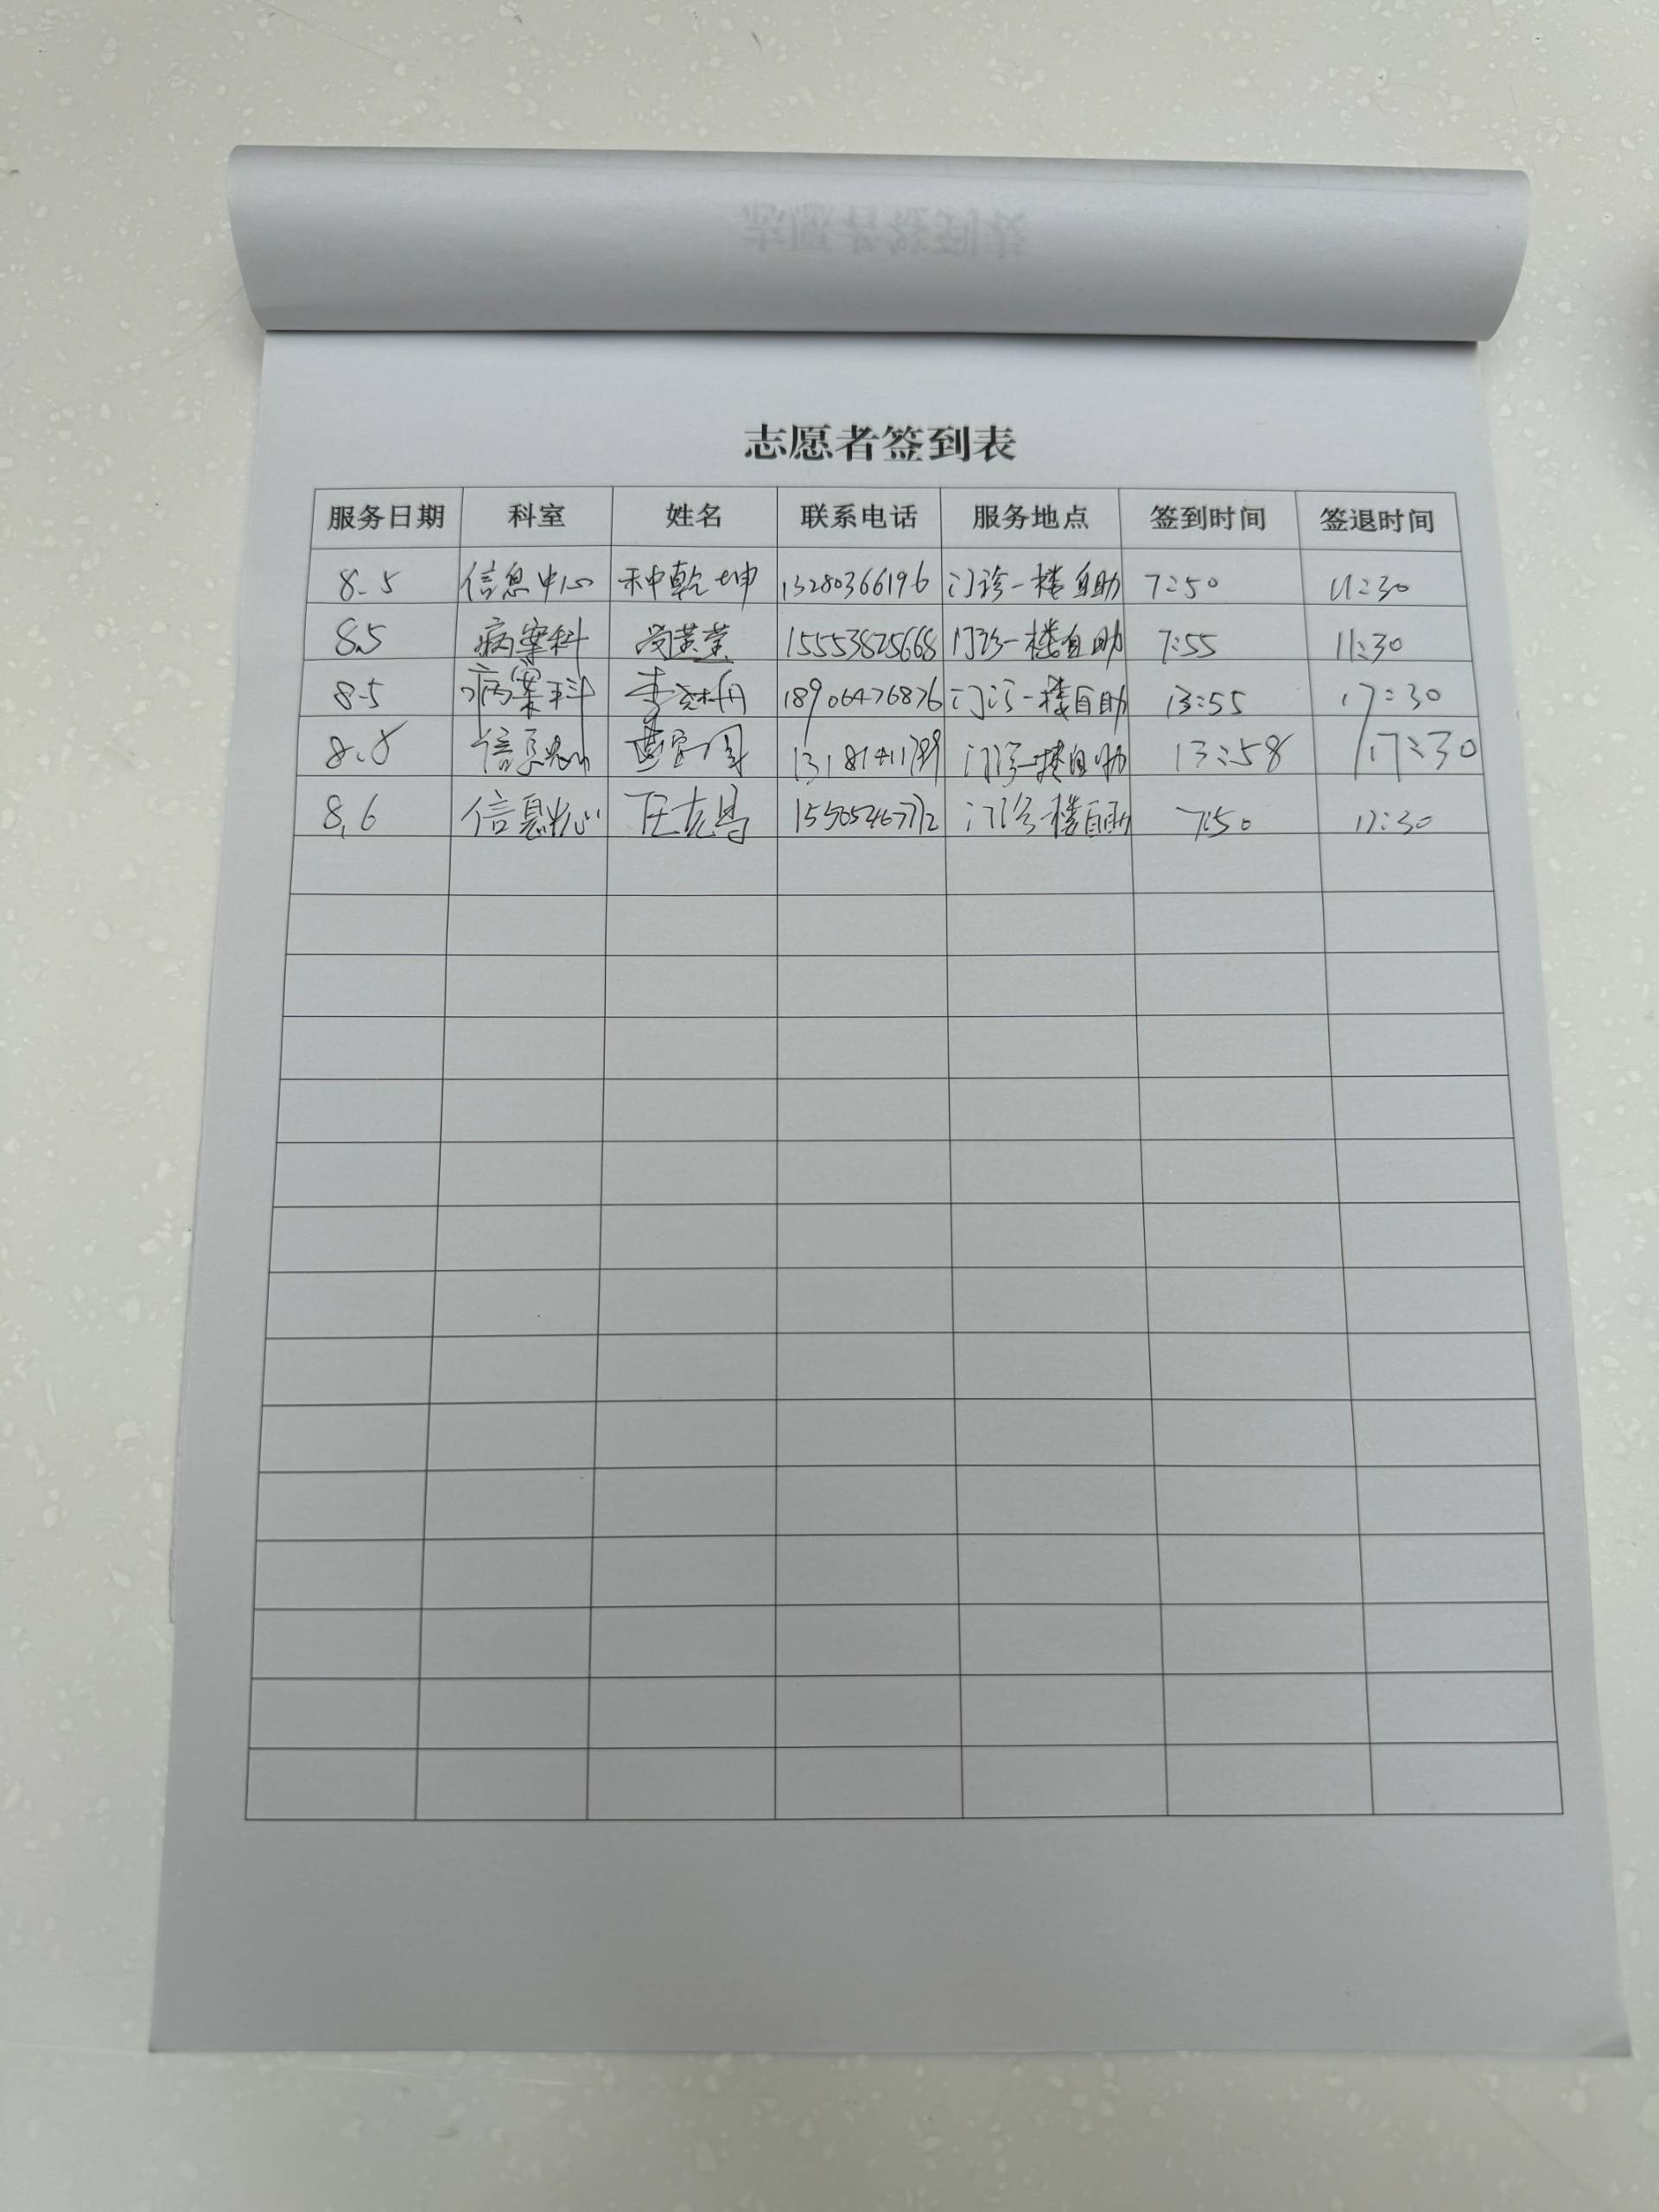 志愿者签到表
服务日期 科室 姓名 联系电话 服务地点 签到时间 签退时间
8.5 信息中心 种乾坤 13280366196 门诊一楼自助 7:50 11:30
8.5 病案科 15553825668 门诊一楼自助 7:55 11:30
8.5 病案科 李 18906476876 门诊一楼自助 13:55 17:30
8.5 信息中心 门诊一楼自助 13:58 17:30
8.6 信息中心 门诊一楼自助 7:50